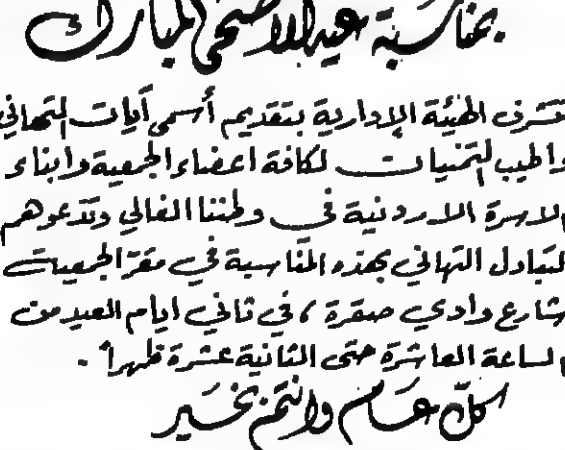 بمناسبة عيد الأضحى المبارك
تتشرف الهيئة الإدارية بتقديم أسمى آيات التهاني
واطيب التمنيات لكافة اعضاء الجمعية وابناء
الاسرة الاردنية في وطننا الغالي وتدعوهم
لتبادل التهاني بهذه المناسبة في مقر الجمعية
شارع وادي صقرة ، في ثاني ايام العيد من
الساعة العاشرة حتى الثانية عشرة ظهراً .
كل عام وانتم بخير